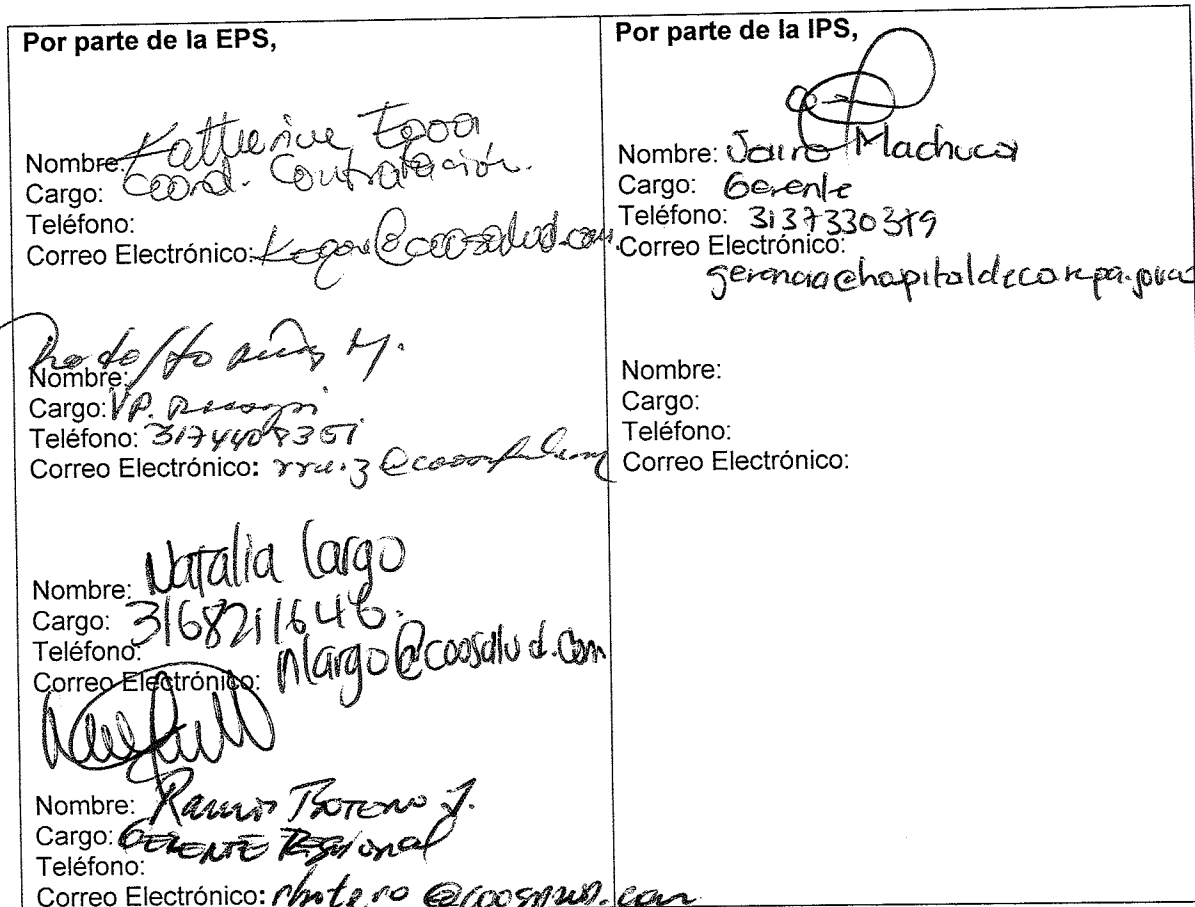 Por parte de la EPS,
Nombre: Katherine
Cargo: Coord. Contratación.
Teléfono:
Correo Electrónico: @coosalud.com.
Nombre:
Cargo: VP.
Teléfono:
Correo Electrónico: rruiz@
Nombre: Natalia Largo
Cargo: 3168211646.
Teléfono:
Correo Electrónico: nlargo@coosalud.com
Nombre: Botero J.
Cargo: GERENTE Regional
Teléfono:
Correo Electrónico: rbotero@coosalud.com
Por parte de la IPS,
Nombre: Jairo Machuca
Cargo: Gerente
Teléfono: 3137330379
Correo Electrónico:
Nombre:
Cargo:
Teléfono:
Correo Electrónico: